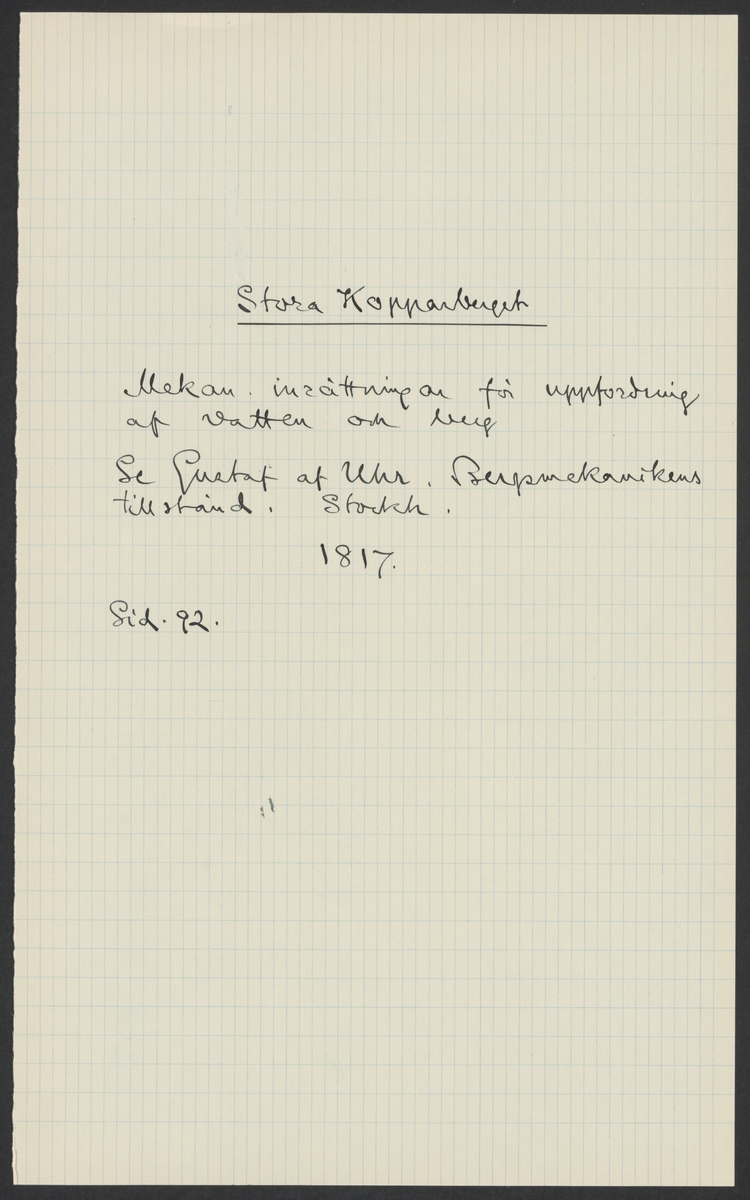 Stora Kopparberget
Mekan. inrättningar för uppfordring
af vatten och berg
Se Gustaf af Uhr. Bergsmekanikens
tillstånd. Stockh.
1817.
Sid. 92.